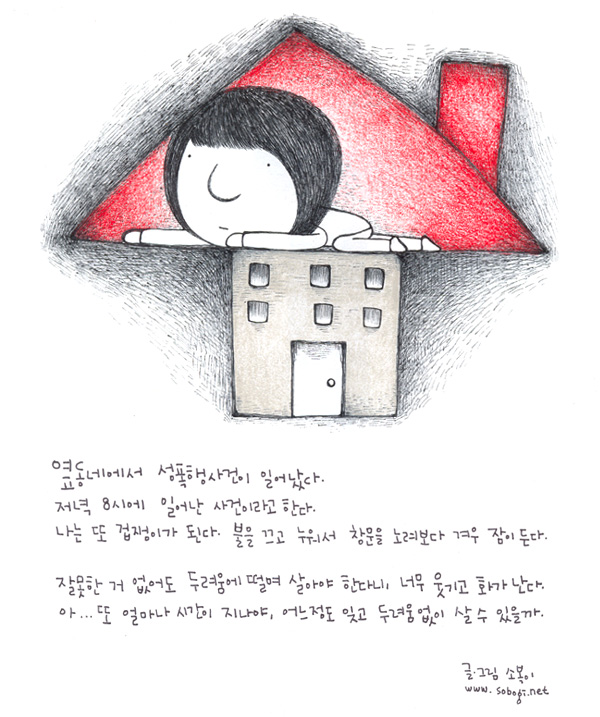 옆동네에서 성폭행사건이 일어났다.
저녁 8시에 일어난 사건이라고 한다.
나는 또 겁쟁이가 된다. 불을 끄고 누워서 창문을 노려보다 겨우 잠이 든다.
잘못한 거 없어도 두려움에 떨며 살아야 한다니, 너무 웃기고 화가 난다.
아... 또 얼마나 시간이 지나야, 어느정도 잊고 두려움없이 살 수 있을까.
글·그림 소복이
www.sobogi.net